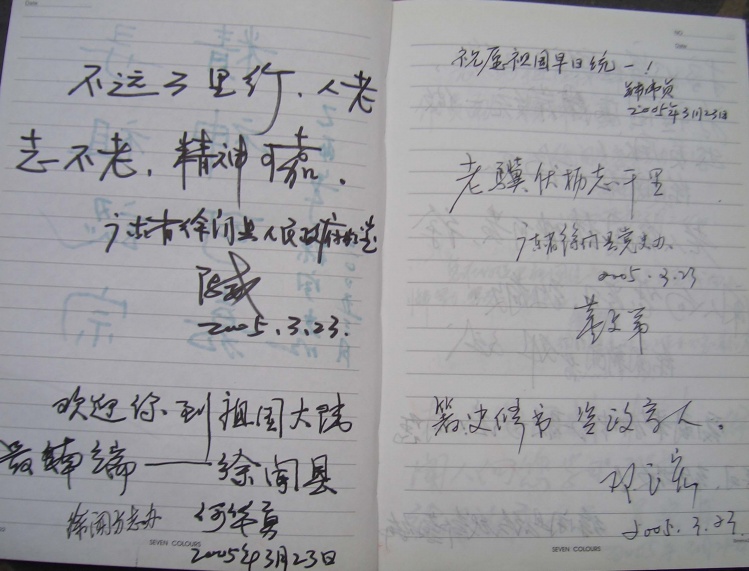 Date
不远千里行，人老
志不老，精神可嘉．
广东省徐闻县人民政府
2005.3.23.
欢迎你到祖国大陆
最南端——徐闻县
徐闻方志办 何华勇
2005年3月23日
SEVEN COLOURS
NO.
Date
祝愿祖国早日统一！
2005年3月23日
老骥伏枥志千里
广东省徐闻县党史办．
2005.3.23
著史修书 资政育人。
2005.3.23
SEVEN COLOURS